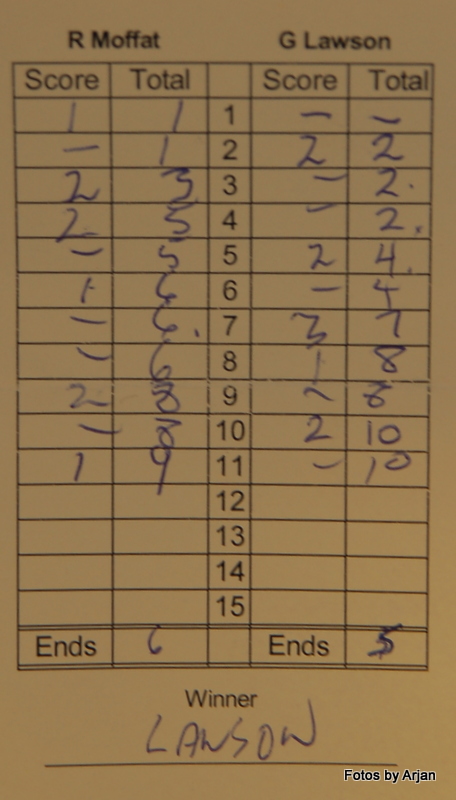 R Moffat G Lawson
Score Total Score Total
1 1 1 – –
– 1 2 2 2
2 3 3 – 2.
2 5 4 – 2.
– 5 5 2 4.
1 6 6 – 4
– 6. 7 3 7
– 6 8 1 8
2 8 9 – 8
– 8 10 2 10
1 9 11 – 10
12
13
14
15
Ends 6 Ends 5
Winner
LAWSON
Fotos by Arjan